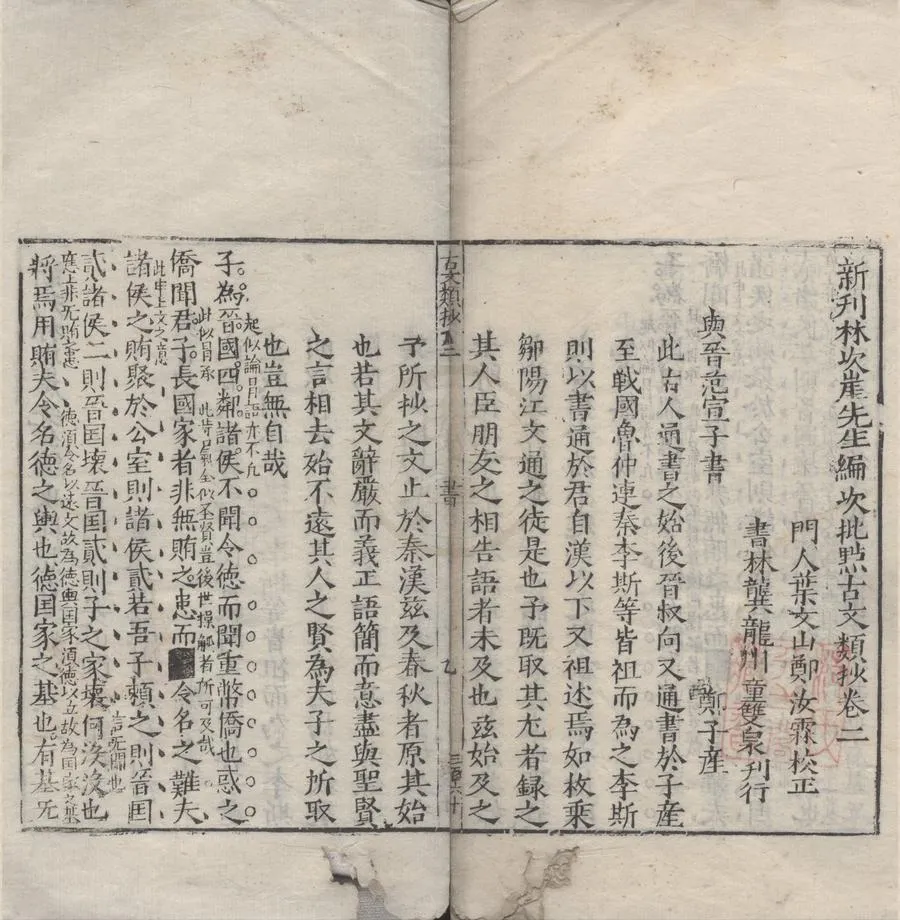 新刊林次崖先生編次批點古文類抄卷二
門人葉文山鄭汝霖校正
書林龔龍州童雙泉刋行
與晉范宣子書
鄭子産
此古人通書之始後晉叔向又通書於子産
至戰國魯仲連秦李斯等皆祖而為之李斯
則以書通於君自漢以下又祖述焉如枚乗
鄒陽江文通之徒是也予既取其尤者録之
其人臣朋友之相告語者未及也兹始及之
古文類抄 二
書
乙
三百六十
予所抄之文止於秦漢兹及春秋者原其始
也若其文辭嚴而義正語簡而意盡與聖賢
之言相去殆不遠其人之賢為夫子之所取
也豈無自哉
起似論冒語亦不凡
子為晉國四鄰諸侯不聞令德而聞重幣僑也惑之
此似冒承 此背冒全似聖賢豈後世操觚者所可及哉
僑聞君子長國家者非無賄之患而令名之難夫
此申上文之意
諸侯之賄聚於公室則諸侯貳若吾子頼之則晉国
言无聞也
貳諸侯二則晉国壊晉国貳則子之家壊何沒沒也
應上非无賄之患 德須令名以逺文故為德輿国家須德以立故為国家之基
將焉用賄夫令名德之輿也德国家之基也有基无